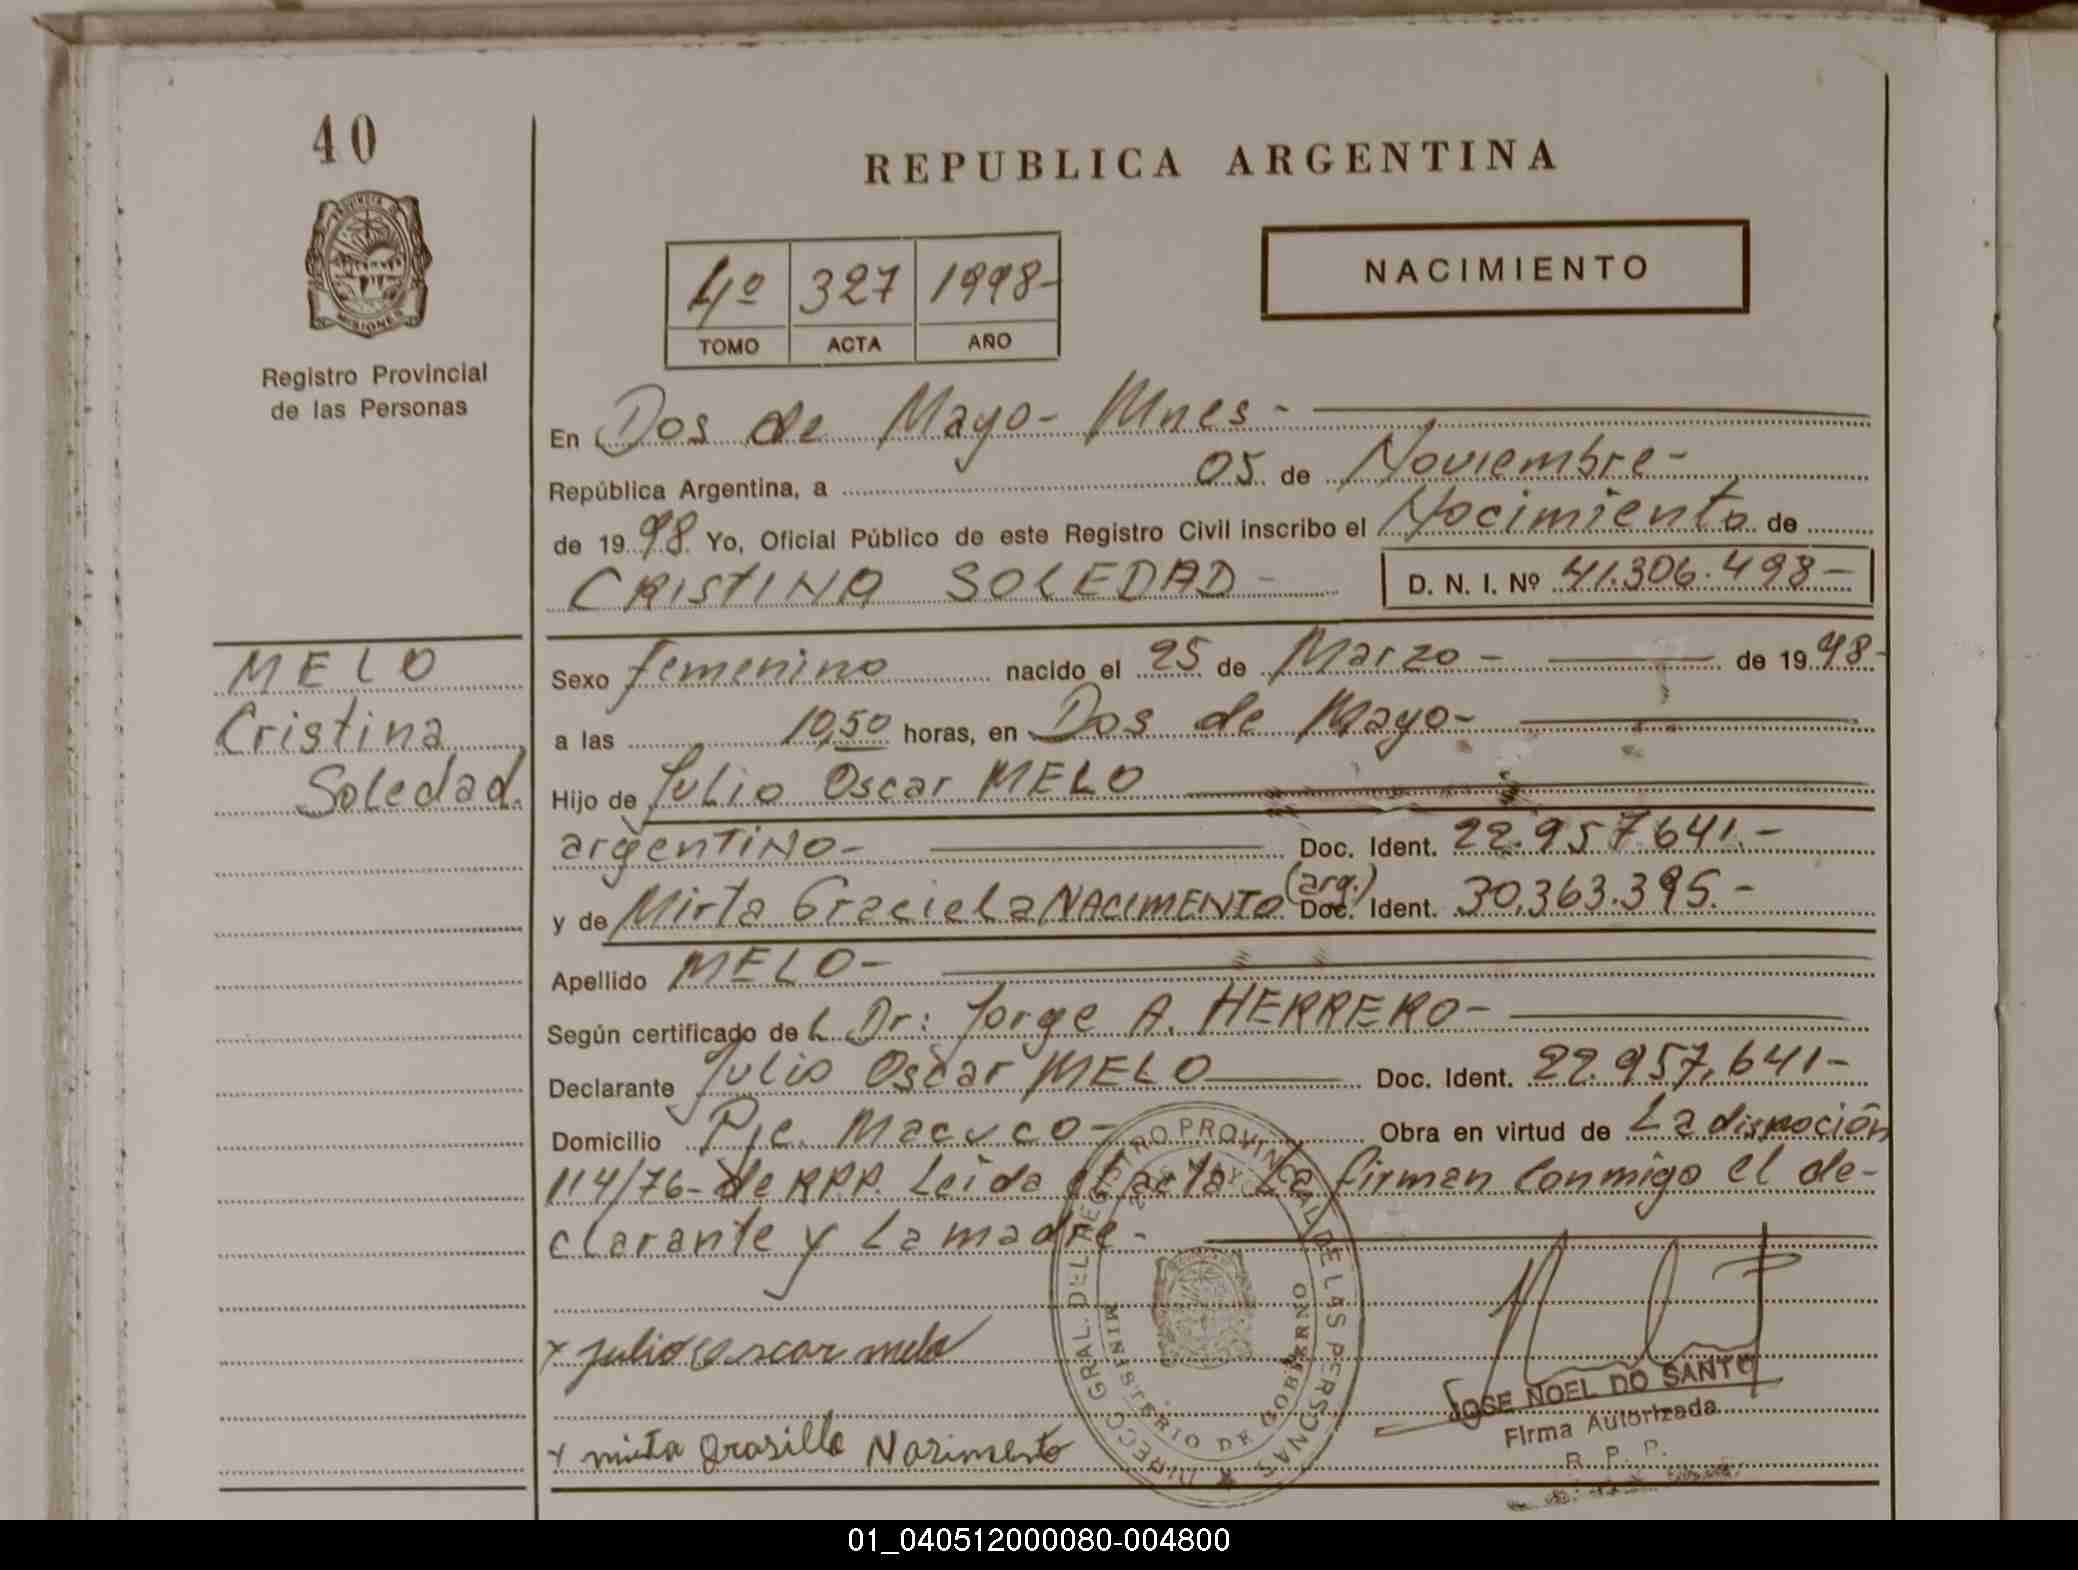 40
PROVINCIA DE
MISIONES
Registro Provincial
de las Personas
MELO
Cristina
Soledad.
REPUBLICA ARGENTINA
4º 327 1998-
TOMO ACTA AÑO
NACIMIENTO
En Dos de Mayo- Mnes-
República Argentina, a 05 de Noviembre-
de 1998 Yo, Oficial Público de este Registro Civil inscribo el Nacimiento de
CRISTINA SOLEDAD- D. N. I. Nº 41.306.498-
Sexo femenino nacido el 25 de Marzo- de 1998-
a las 10,50 horas, en Dos de Mayo-
Hijo de Julio Oscar MELO
argentino- Doc. Ident. 22.957.641.-
y de Mirta Graciela NACIMENTO (arg.) Doc. Ident. 30.363.395.-
Apellido MELO-
Según certificado del Dr: Jorge A. HERRERO-
Declarante Julio Oscar MELO Doc. Ident. 22.957.641-
Domicilio Pje. Macuco- Obra en virtud de La disposición
114/76- de RPP. Leida el acta La firman conmigo el de-
clarante y La madre-
x julio oscar melo
x mirta grasille Nasimento
DIRECC GRAL. DEL REGISTRO PROVINCIAL DE LAS PERSONAS
MINISTERIO DE GOBIERNO
JOSE NOEL DO SANTO
Firma Autorizada
R. P. P.
01_040512000080-004800